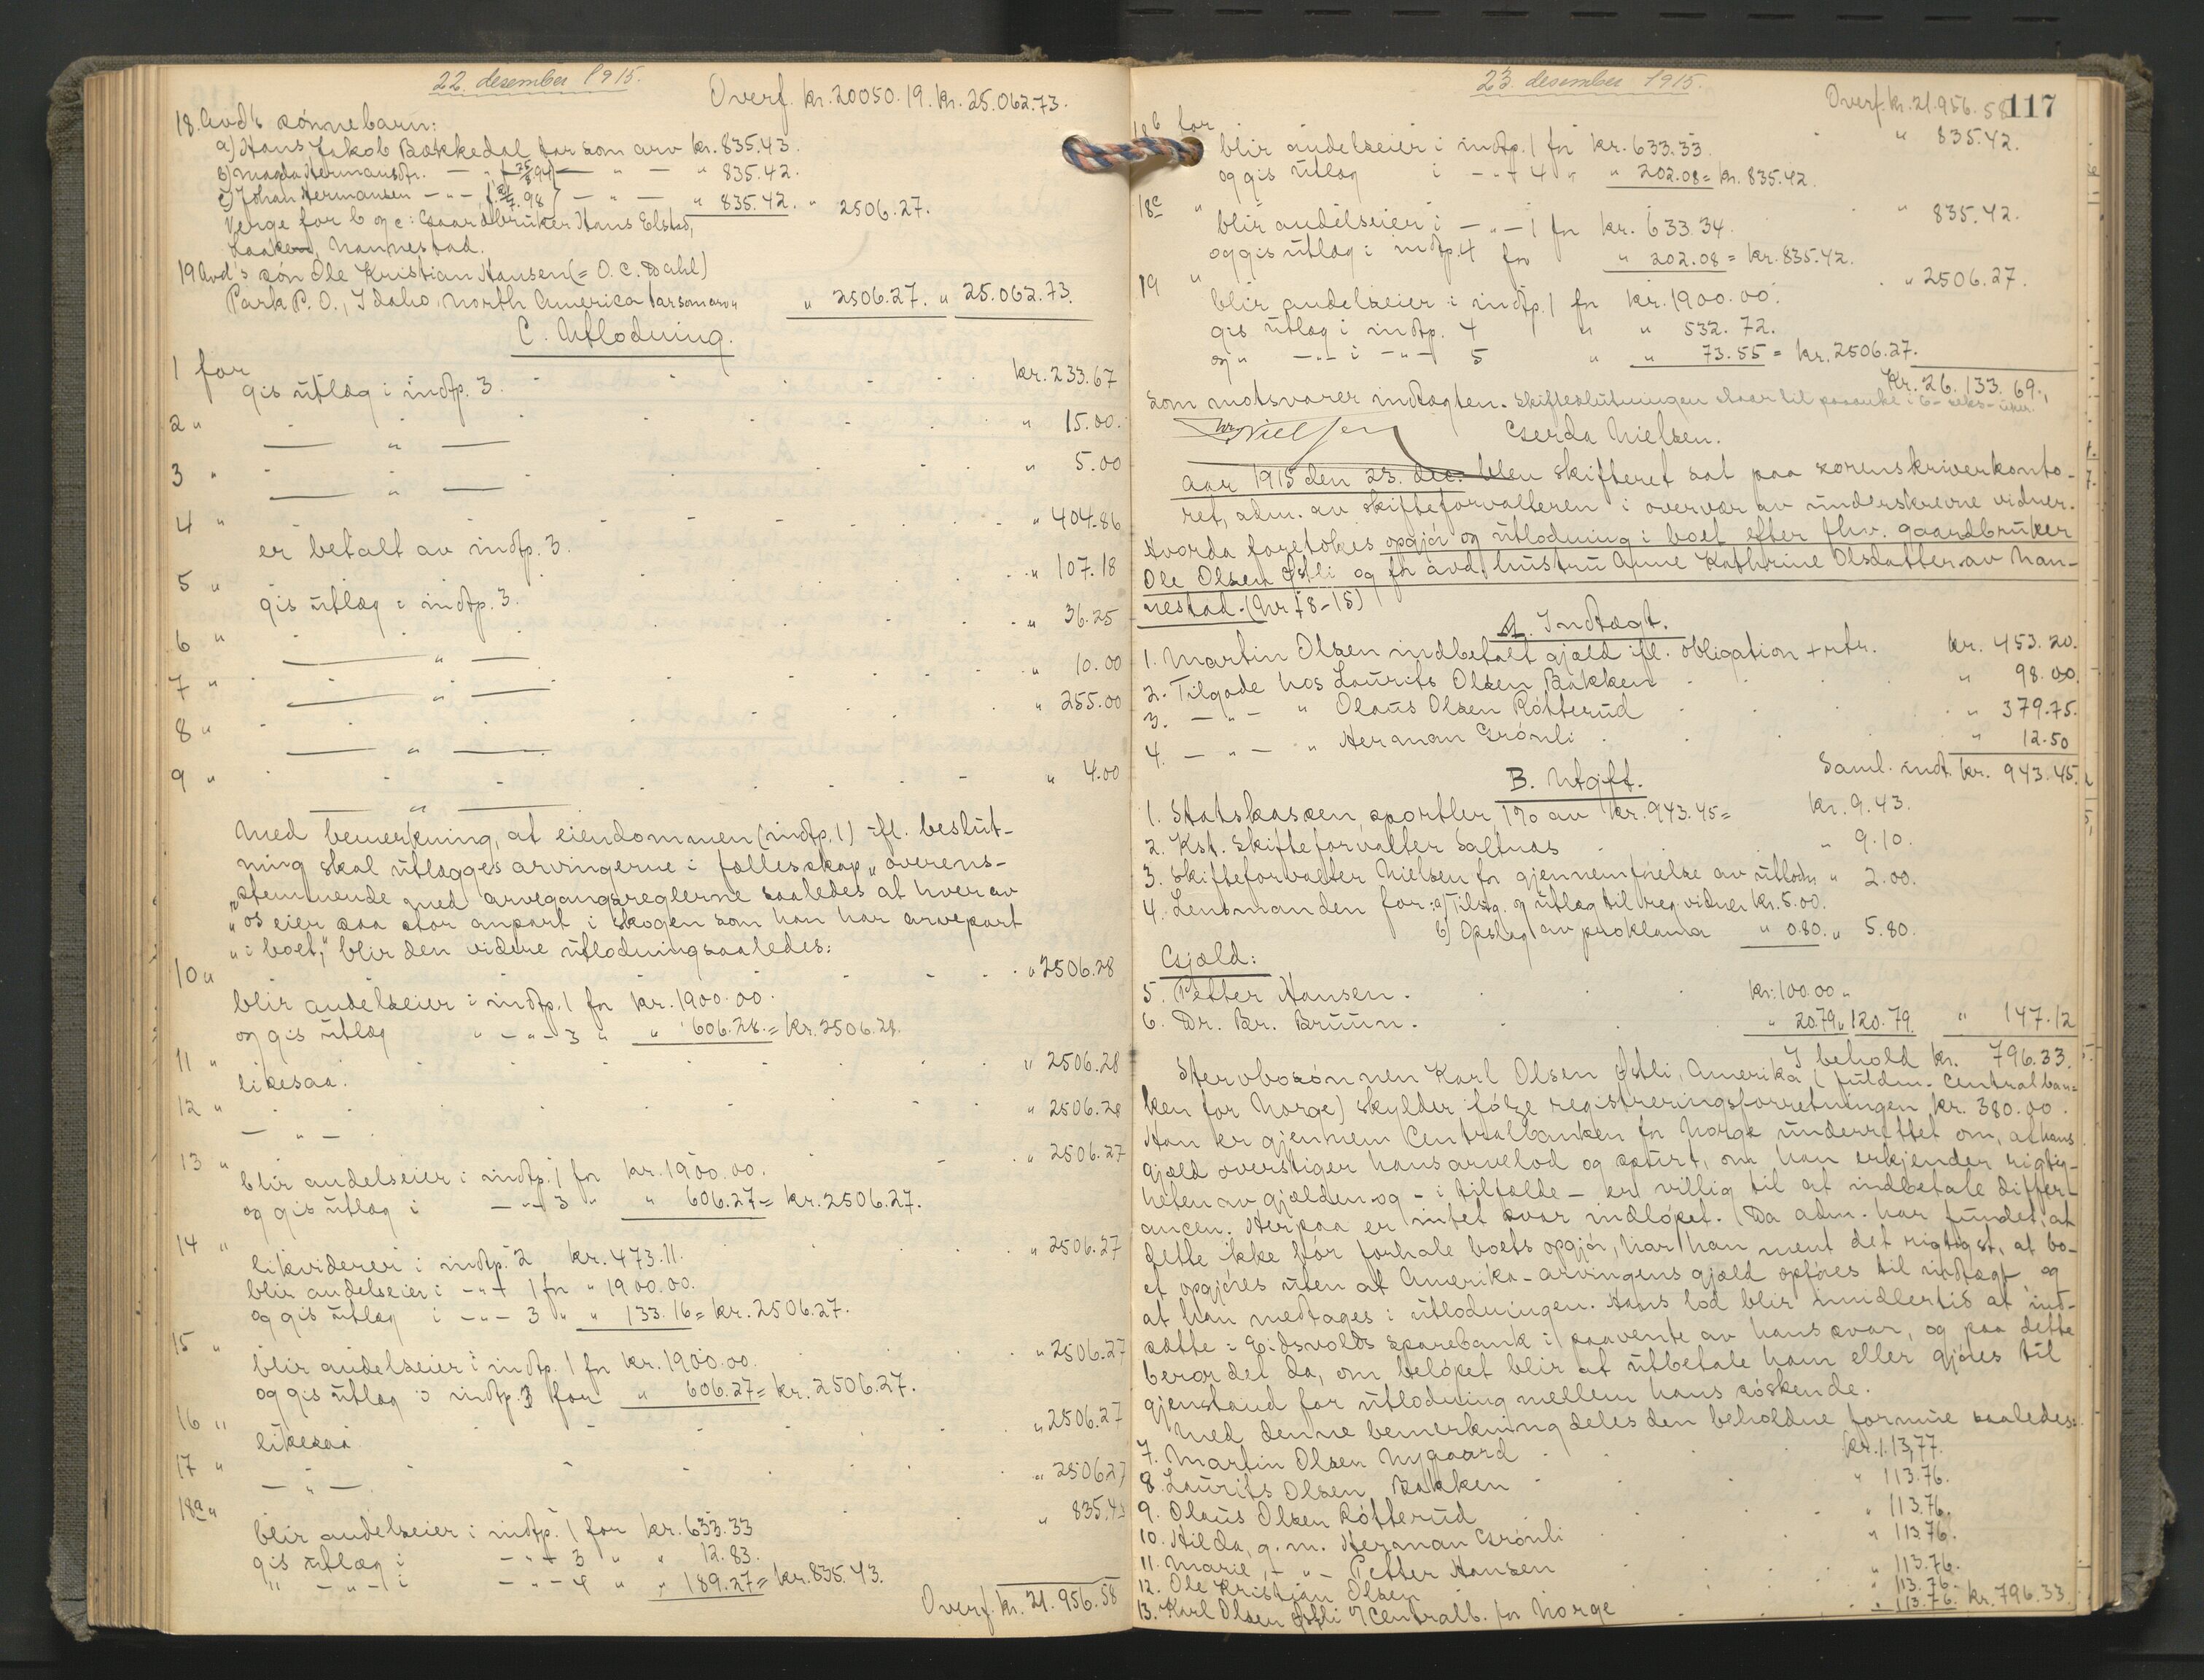 22. desember 1915.
Overf. kr. 20050.19. kr. 25.062.73.
18. Avd's sønnebarn:
a) Hans Jakob Bakkedal far som arv kr. 835.43.
b) Magda Hermansdtr. — " — f. 25/8.94 — " — " 835.42.
c) Johan Hermansen — " — f. 21/7.98 — " — " 835.42. " 2506.27.
Verge for b og c: Gaardbruker Hans Elstad,
Laake, Nannestad.
19 Avd's søn Ole Kristian Hansen (= O. C. Dahl)
Park P. O., Idaho, North America far som arv " 2506.27. " 25.062.73.
C. Utlodning.
1 for kr. 233.67
gis utlæg i indtp. 3.
2 " " 15.00.
— " —
3 " " 5.00
— " —
4 " " 404.86
er betalt av indtp. 3.
5 " " 107.18
gis utlæg i indtp. 3.
6 " " 36.25
— " —
7 " " 10.00
— " —
8 " " 255.00
— " —
9 " " 4.00
— " —
Med bemerkning, at eiendommen (indtp. 1) ifl. beslut-
ning skal utlægges arvingerne i fællesskap "overens-
"stemmende med arvegangsreglerne saaledes at hver av
"os eier saa stor anpart i skogen som han har arvepart
"i boet," blir den videre utlodning saaledes:
10 " " 2506.28
blir andelseier i indtp. 1 for kr. 1900.00.
og gis utlæg " — " — 3 " " 606.28. = kr. 2506.28.
11 " " 2506.28
likesaa.
12 " " 2506.28
— " —
13 " " 2506.27
blir andelseier i indtp. 1 for kr. 1900.00.
og gis utlæg i — " — 3 " " 606.27 = kr. 2506.27.
14 " " 2506.27
likviderer i indtp. 2 kr. 473.11.
blir andelseier i — " — 1 for " 1900.00.
og gis utlæg i — " — 3 " " 133.16 = kr. 2506.27.
15 " " 2506.27
blir andelseier i indtp. 1 for kr. 1900.00.
og gis utlæg i indtp. 3 for " 606.27 = kr. 2506.27.
16 " " 2506.27
likesaa
17 " " 2506.27
— " —
18a " " 835.43
blir andelseier i indtp. 1 for kr. 633.33
gis utlæg i — " — 3 " " 12.83.
" — " — i — " — 4 " " 189.27 = kr. 835.43.
Overf. kr. 21.956.58
23. desember 1915.
Overf. kr. 21.956.58
117
18b for " 835.42.
blir andelseier i indtp. 1 for kr. 633.33.
og gis utlæg i — " — 4 " " 202.08 = kr. 835.42.
18c " " 835.42.
blir andelseier i — " — 1 for kr. 633.34.
og gis utlæg i indtp. 4 for " 202.08 = kr. 835.42.
19 " " 2506.27.
blir andelseier i indtp. 1 for kr. 1900.00.
gis utlæg i indtp. 4 " " 532.72.
og " — " — i — " — 5 " " 73.55 = kr. 2506.27.
Kr. 26.133.69.,
som motsvarer indtægten. Skifteslutningen staar til paaanke i 6 - seks - uker.
Nielsen Gerda Nielsen.
Aar 1915 den 23. dec. blev skifteret sat paa sorenskriverkonto-
ret, adm. av skifteforvalteren i overvær av underskrevne vidner.
Hvorda foretokes opgjør og utlodning i boet efter fhv. gaardbruker
Ole Olsen Østli og før avd. hustru Anne Kathrine Olsdatter av Nan-
nestad. (Nr 78-15)
A. Indtægt.
1. Martin Olsen indbetalt gjæld ifl. obligation + rtr. kr. 453.20.
2. Tilgode hos Laurits Olsen Bakken " 98.00.
3. — " — " Olaus Olsen Røtterud " 379.75.
4. — " — " Herman Grønli " 12.50
Saml. indt. kr. 943.45.
B. Utgift.
1. Statskassen, sportler 1% av kr. 943.45 = kr. 9.43.
2. Kst. skifteforvalter Saltnæs " 9.10.
3. Skifteforvalter Nielsen for gjennemførelse av utlodn. " 2.00.
4. Lensmanden for: a) Tilstg. og utlæg til reg. vidner kr. 5.00.
b) Opslag av proklama " 0.80. " 5.80.
Gjæld:
5. Petter Hansen. kr. 100.00 "
6. Dr. Br. Bruun. " 20.79 " 120.79. " 147.12
I behold kr. 796.33.
Stervbosønnen Karl Olsen Østli, Amerika (fuldm. Centralban-
ken for Norge) skylder ifølge registreringsforretningen kr. 380.00.
Han er gjennem Centralbanken for Norge underrettet om, at hans
gjæld overstiger hans arvelod og spurt, om han erkjender rigtig-
heten av gjælden og - i tilfælde - er villig til at indbetale differ-
ancen. Herpaa er intet svar indløpet. Da adm. har fundet, at
dette ikke bør forhale boets opgjør, har han ment det rigtigst, at bo-
et opgjøres uten at Amerika-arvingens gjæld opføres til indtægt og
at han medtages i utlodningen. Hans lod blir imidlertid at ind-
sætte i Eidsvolds sparebank i paavente av hans svar, og paa dette
beror det da, om beløpet blir at utbetale ham eller gjøres til
gjenstand for utlodning mellem hans søskende.
Med denne bemerkning deles den beholdne formue saaledes:
7. Martin Olsen Nygaard kr. 113,77.
8. Laurits Olsen Bakken " 113.76.
9. Olaus Olsen Røtterud " 113.76.
10. Hilda, g. m. Herman Grønli " 113.76.
11. Marie, — " — Petter Hansen " 113.76.
12. Ole Kristian Olsen " 113.76.
13. Karl Olsen Østli v/ Centralb. for Norge " 113.76. kr. 796.33